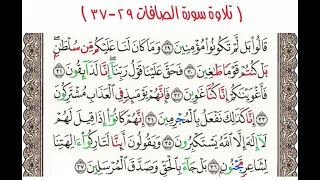 ( تلاوة سورة الصافات ٢٩-٣٧ )
قَالُوا۟ بَل لَّمْ تَكُونُوا۟ مُؤْمِنِينَ ٢٩ وَمَا كَانَ لَنَا عَلَيْكُم مِّن سُلْطَٰنٍۭ
بَلْ كُنتُمْ قَوْمًا طَٰغِينَ ٣٠ فَحَقَّ عَلَيْنَا قَوْلُ رَبِّنَآ إِنَّا لَذَآئِقُونَ ٣١
فَأَغْوَيْنَٰكُمْ إِنَّا كُنَّا غَٰوِينَ ٣٢ فَإِنَّهُمْ يَوْمَئِذٍ فِى ٱلْعَذَابِ مُشْتَرِكُونَ
٣٣ إِنَّا كَذَٰلِكَ نَفْعَلُ بِٱلْمُجْرِمِينَ ٣٤ إِنَّهُمْ كَانُوٓا۟ إِذَا قِيلَ لَهُمْ
لَآ إِلَٰهَ إِلَّا ٱللَّهُ يَسْتَكْبِرُونَ ٣٥ وَيَقُولُونَ أَئِنَّا لَتَارِكُوٓا۟ ءَالِهَتِنَا
لِشَاعِرٍ مَّجْنُونٍۭ ٣٦ بَلْ جَآءَ بِٱلْحَقِّ وَصَدَّقَ ٱلْمُرْسَلِينَ ٣٧